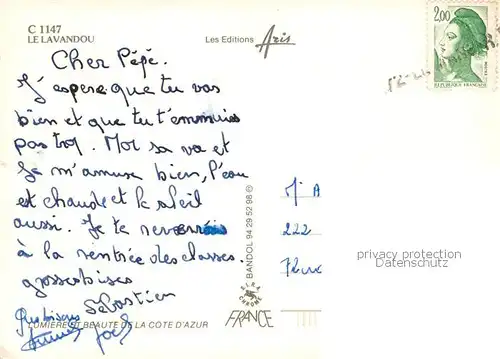 C 1147
LE LAVANDOU
Les Editions Aris
2,00
REPUBLIQUE FRANÇAISE
Cher Pépé.
J'espere que tu vas
bien et que tu t'ennuies
pas trop. Moi sa va et
Je m'amuse bien, l'eau
est chaude et le soleil
aussi. Je te reverrais
à la rentrée des classes.
grosse bises
Sébastien
Gros bisous
LUMIERE ET BEAUTE DE LA COTE D'AZUR
BANDOL 94 29 52 96 ©
FRANCE
222
privacy protection
Datenschutz